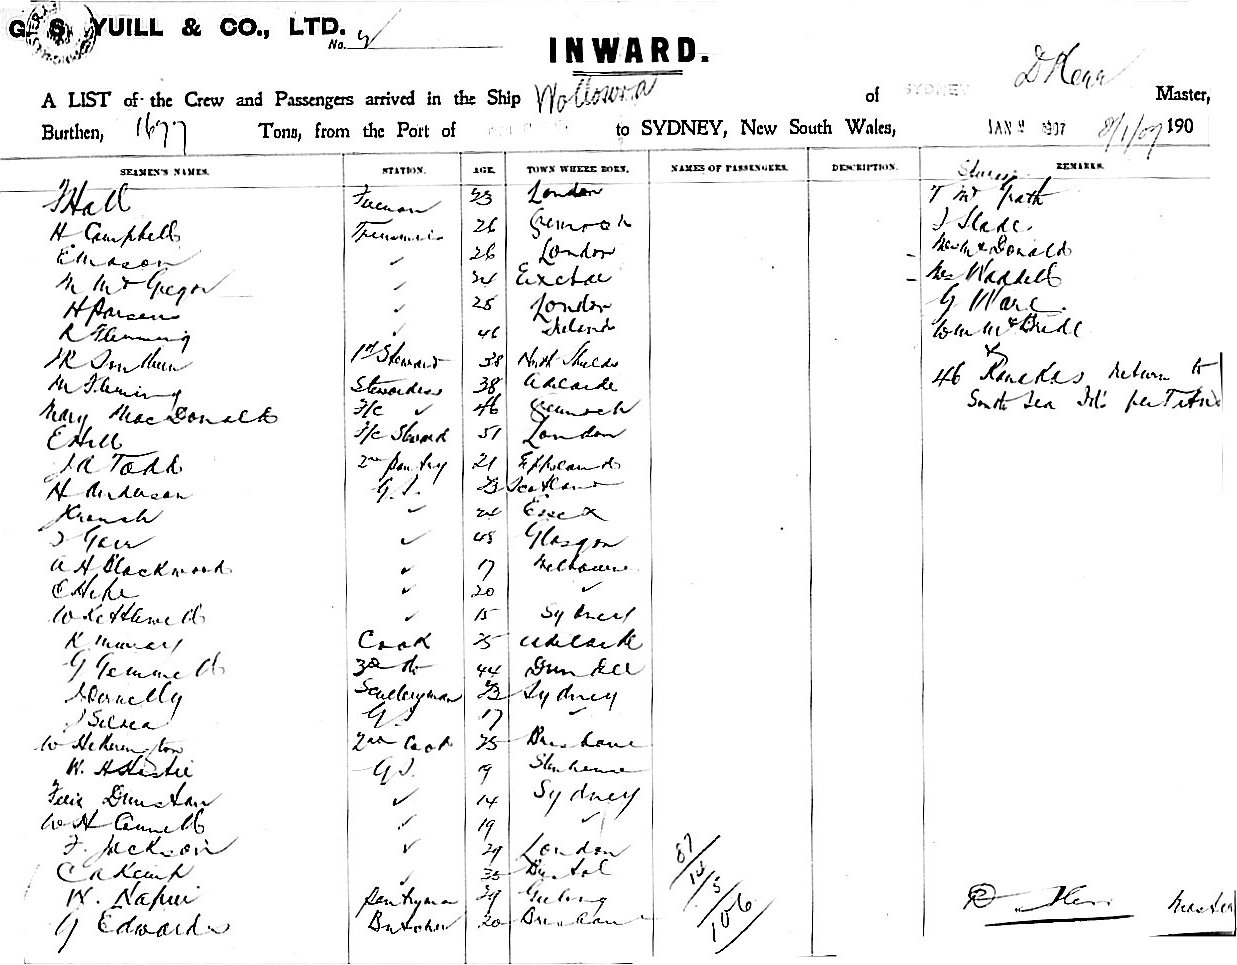 G. S. YUILL & CO., LTD.
No.
INWARD.
A LIST of the Crew and Passengers arrived in the Ship Wollowra of SYDNEY D Kerr Master,
Burthen, 1677 Tons, from the Port of to SYDNEY, New South Wales, JAN 1907 8/1/07 190
SEAMEN'S NAMES. STATION. AGE. TOWN WHERE BORN. NAMES OF PASSENGERS. DESCRIPTION. REMARKS.
Hall Fireman 33 London T Mc Grath
H Campbell Trimmer 26 Greenock J Slade
E Mason ✓ 26 London Mrs McDonald
M McGregor ✓ 24 Exeter Mrs Waddell
H Parsons ✓ 25 London G Ware
R Flemming ✓ 46 Ireland Wm McBride
1st Steward 38 North Shields
M Fleming Stewardess 38 Adelaide 46 Kanakas return to
Mary MacDonald F/c ✓ 46 Greenock South Sea Isl's per
E Hill F/c Steward 51 London
J A Todd 2nd pantry 21
H Anderson G.S. 23 Scotland
✓ 24 Essex
✓ 48 Glasgow
A H Blackwood ✓ 17 Melbourne
E ✓ 20 ✓
W Kethewell ✓ 15 Sydney
K Murray Cook 25 Adelaide
G Gemmell 3rd do 44 Dundee
J Donnelly Sculleryman 23 Sydney
J G.S 17 ✓
W Hetherington 2nd Cook 25 Brisbane
W. G.S. 19
Felix Dunstan ✓ 14 Sydney
W H Connell ✓ 19 ✓
F. Jackson ✓ 29 London
C A Kemp ✓ 35 Bristol
W. Napier Pantryman 29 Geelong
G Edwards Butcher 20 Brisbane
87
14
5
106
D Kerr Master